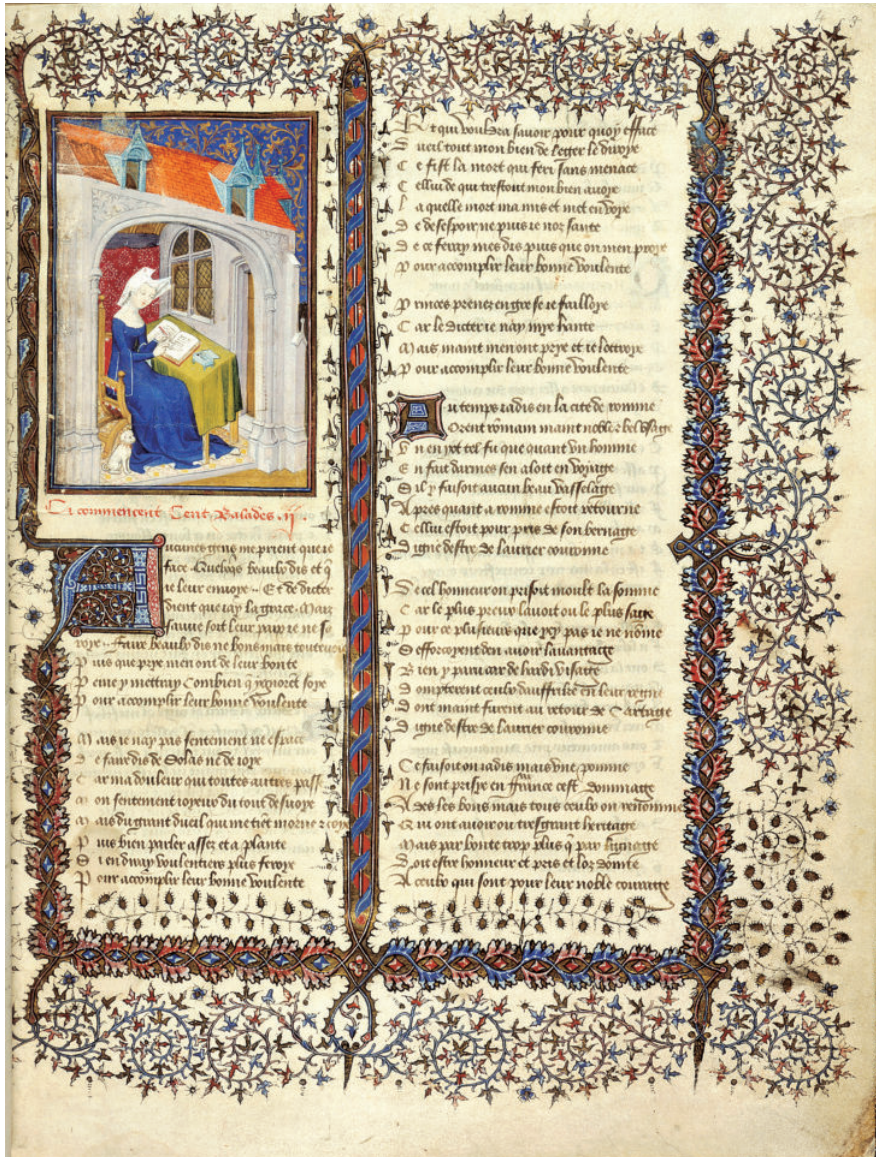 Ci commencent Cent Balades .ij.
Aucunes gens me prient que ie
face Aucuns beaulx dis et q̃
ie leur envoye .. Et de dicter
dient que iay la grace Maiz
sauve soit leur paix ie ne s
voye .. Faire beaulx dis ne bons mais toutevoie
Puis que prye men ont de leur bonte
Peine y mettray Combien q̃ ygnorēt soye
Pour acomplir leur bonne voulente
Mais ie nay pas sentement ne espace
De faire dis de Solas ne de ioye
Car ma douleur qui toutes autres passe
Mon sentement ioyeux du tout desvoye
Mais du grant dueil qui me tiēt morne z coye
Puis bien parler assez et a plante
Si en diray voulentiers plus feroye
Pour acomplir leur bonne voulente
Et qui vouldra savoir pour quoy efface
Dueil tout mon bien de legier le diroye
Ce fist la mort qui feri sans menace
Cellui de qui trestout mon bien avoye
La quelle mort ma mis et met en voye
De desespoir ne puis ie noz sante
De ce feray mes dis puis que on men proye
Pour acomplir leur bonne voulente
Princes prenez en gre se ie failloye
Car le dicter ie nay mye hante
Mais maint men ont prye et ie lottroye
Pour acomplir leur bonne voulente
Au temps iadis en la cite de romme
Orent romain maint noble z bel usage
Un en yot tel fu que quant un homme
En fait darmes sen aloit en voyage
Sil y faisoit aucun beau vasselage
Apres quant a romme estoit retourne
Cellui estoit pour pris de son bernage
Digne destre de laurier couronne
De cel honneur on prisoit moult la somme
Car le plus preux lavoit ou le plus sage
Pour ce plusieurs que yey pas ie ne nōme
Sefforcoyent den avoir lavantage
Bien y paru car de hardi visage
Dompterent ceulx dauffrike en leur regne
Dont maint furent au retour de Cartage
Digne destre de laurier couronne
Ce faisoit on iadis mais une pomme
Ne sont prisye en france cest dommage
Ades les bons mais tous ceulx on renomme
Qui ont avoir ou tresgrant heritage
Mais par bonte trop plus q̃ par lignage
Doit estre honneur et pris et loz dōnte
A ceulx qui sont pour leur noble courage